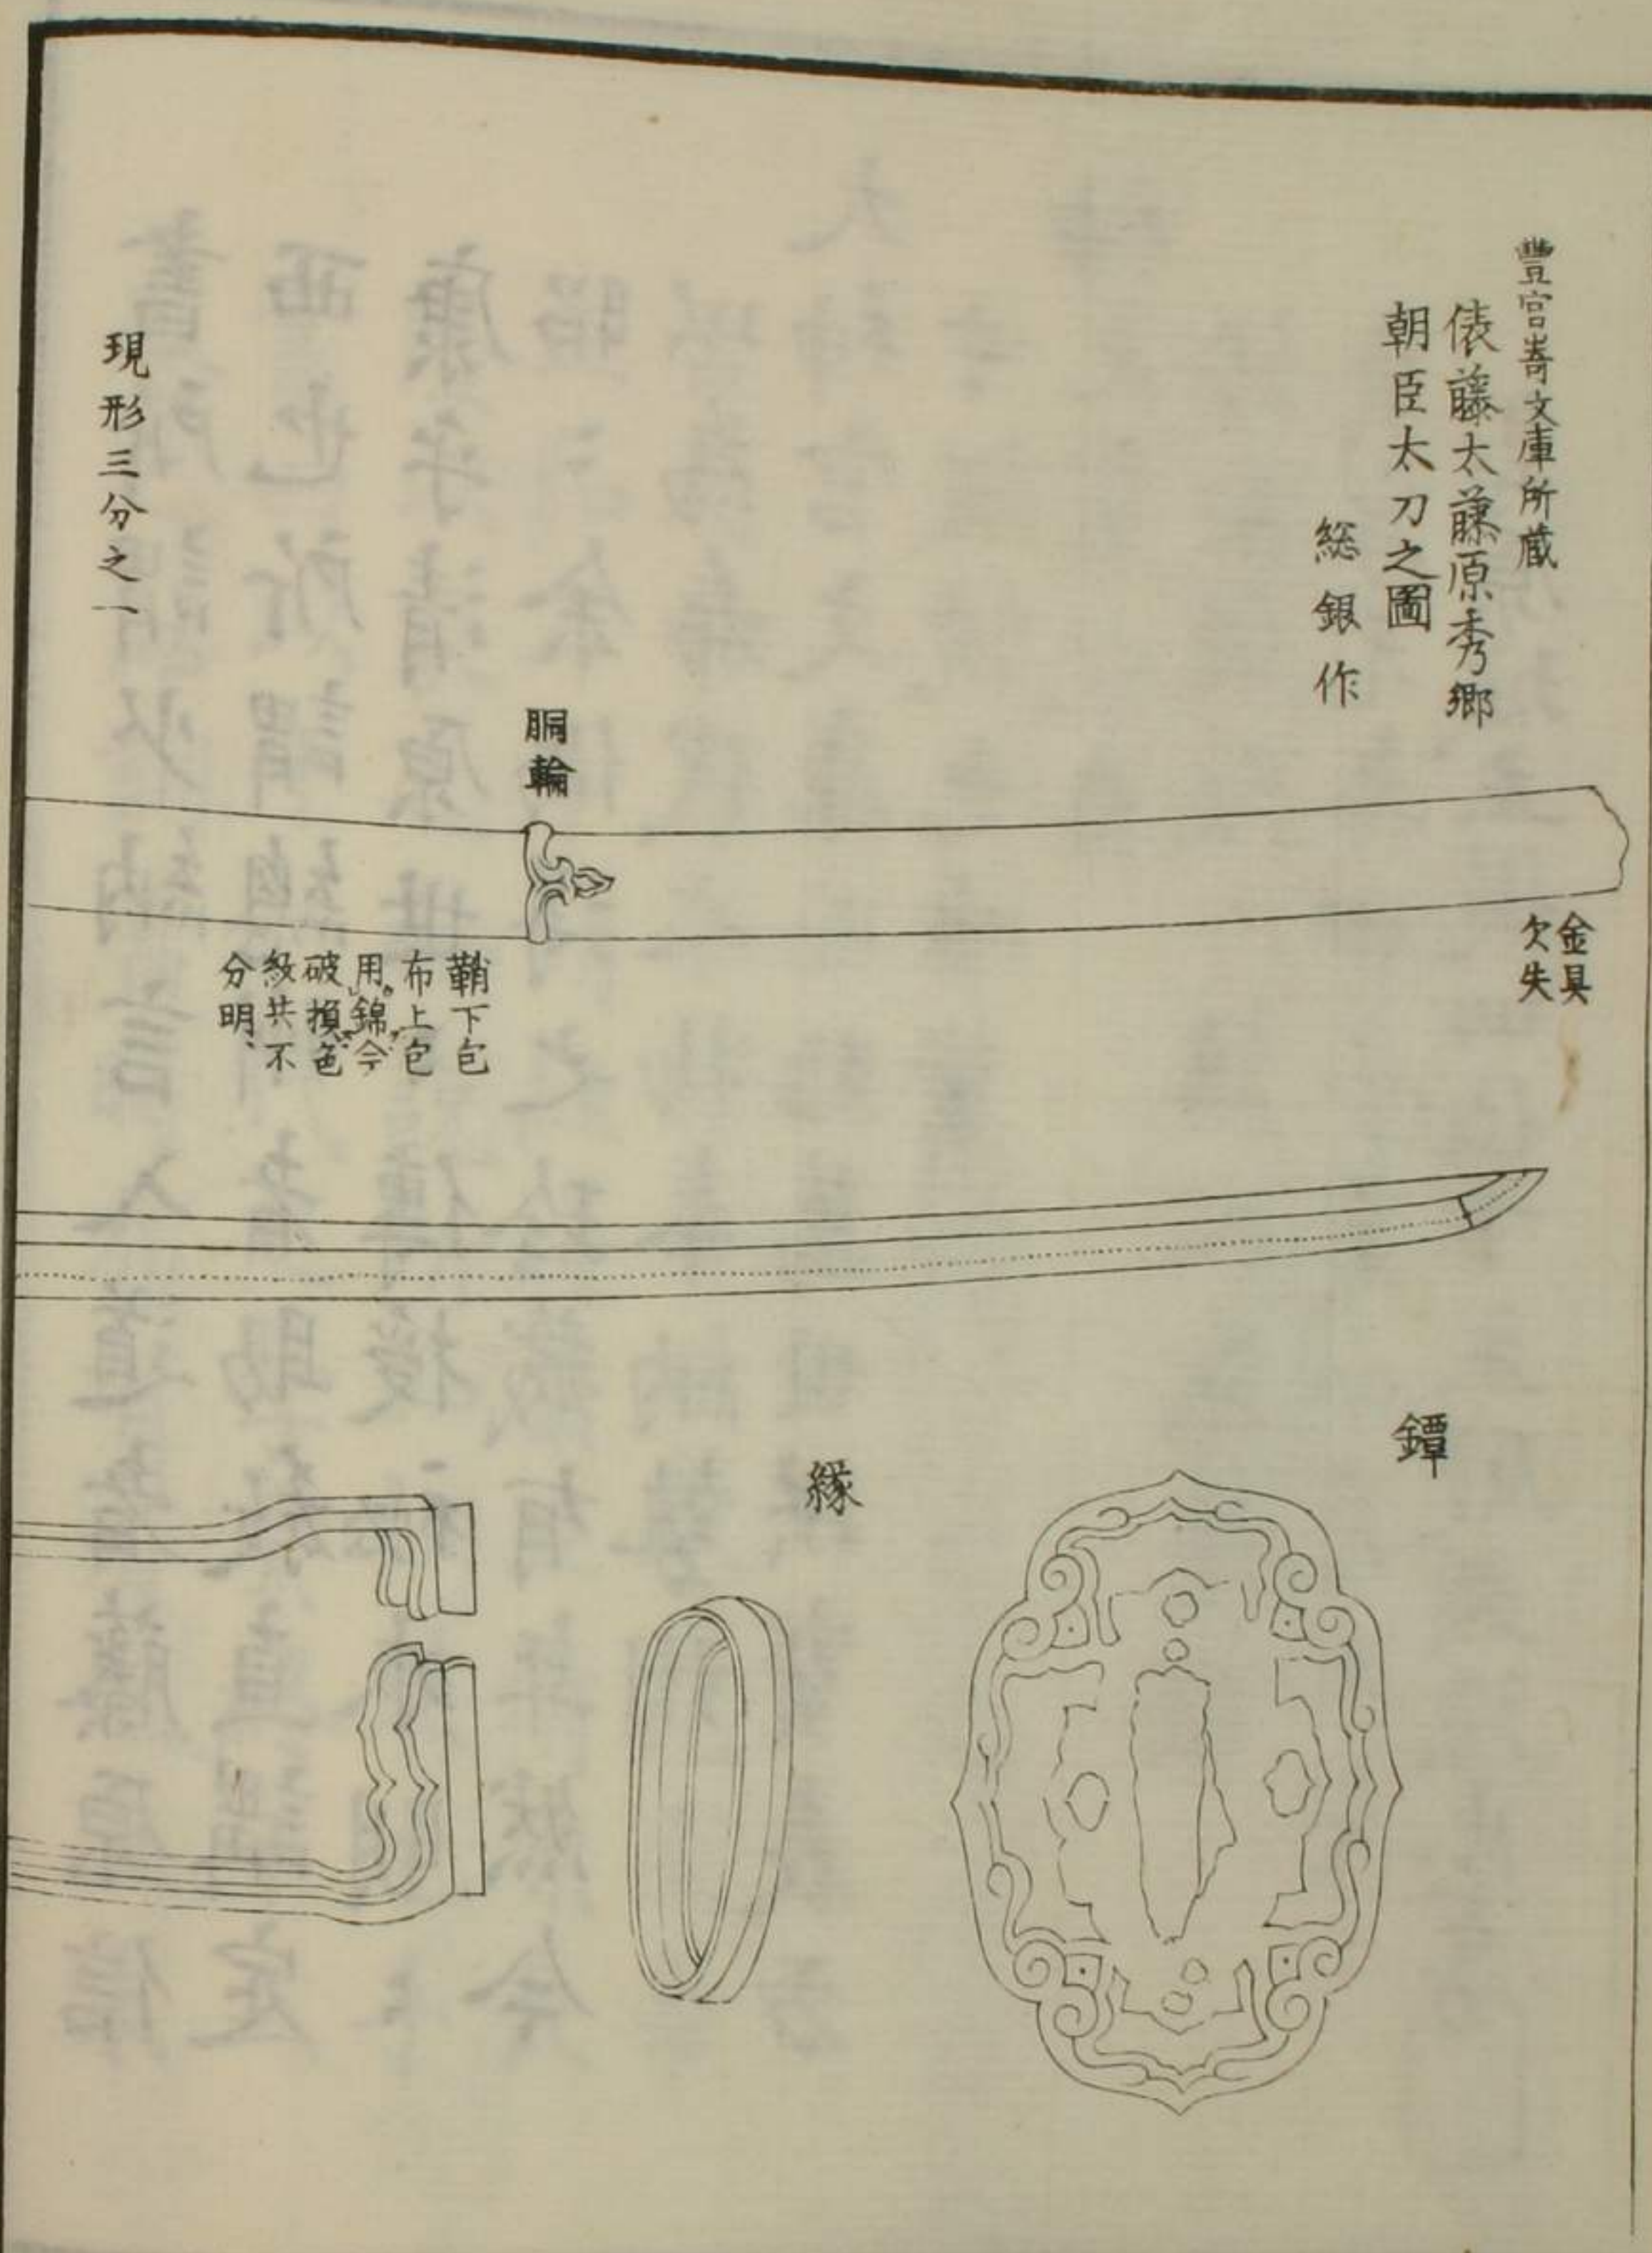 豐宮崎文庫所蔵
俵藤太藤原秀郷
朝臣太刀之圖
総銀作
金具
欠失
胴輪
鞘下包
布上包
用錦今
破損色
級共不
分明、
現形三分之一
鐔
縁